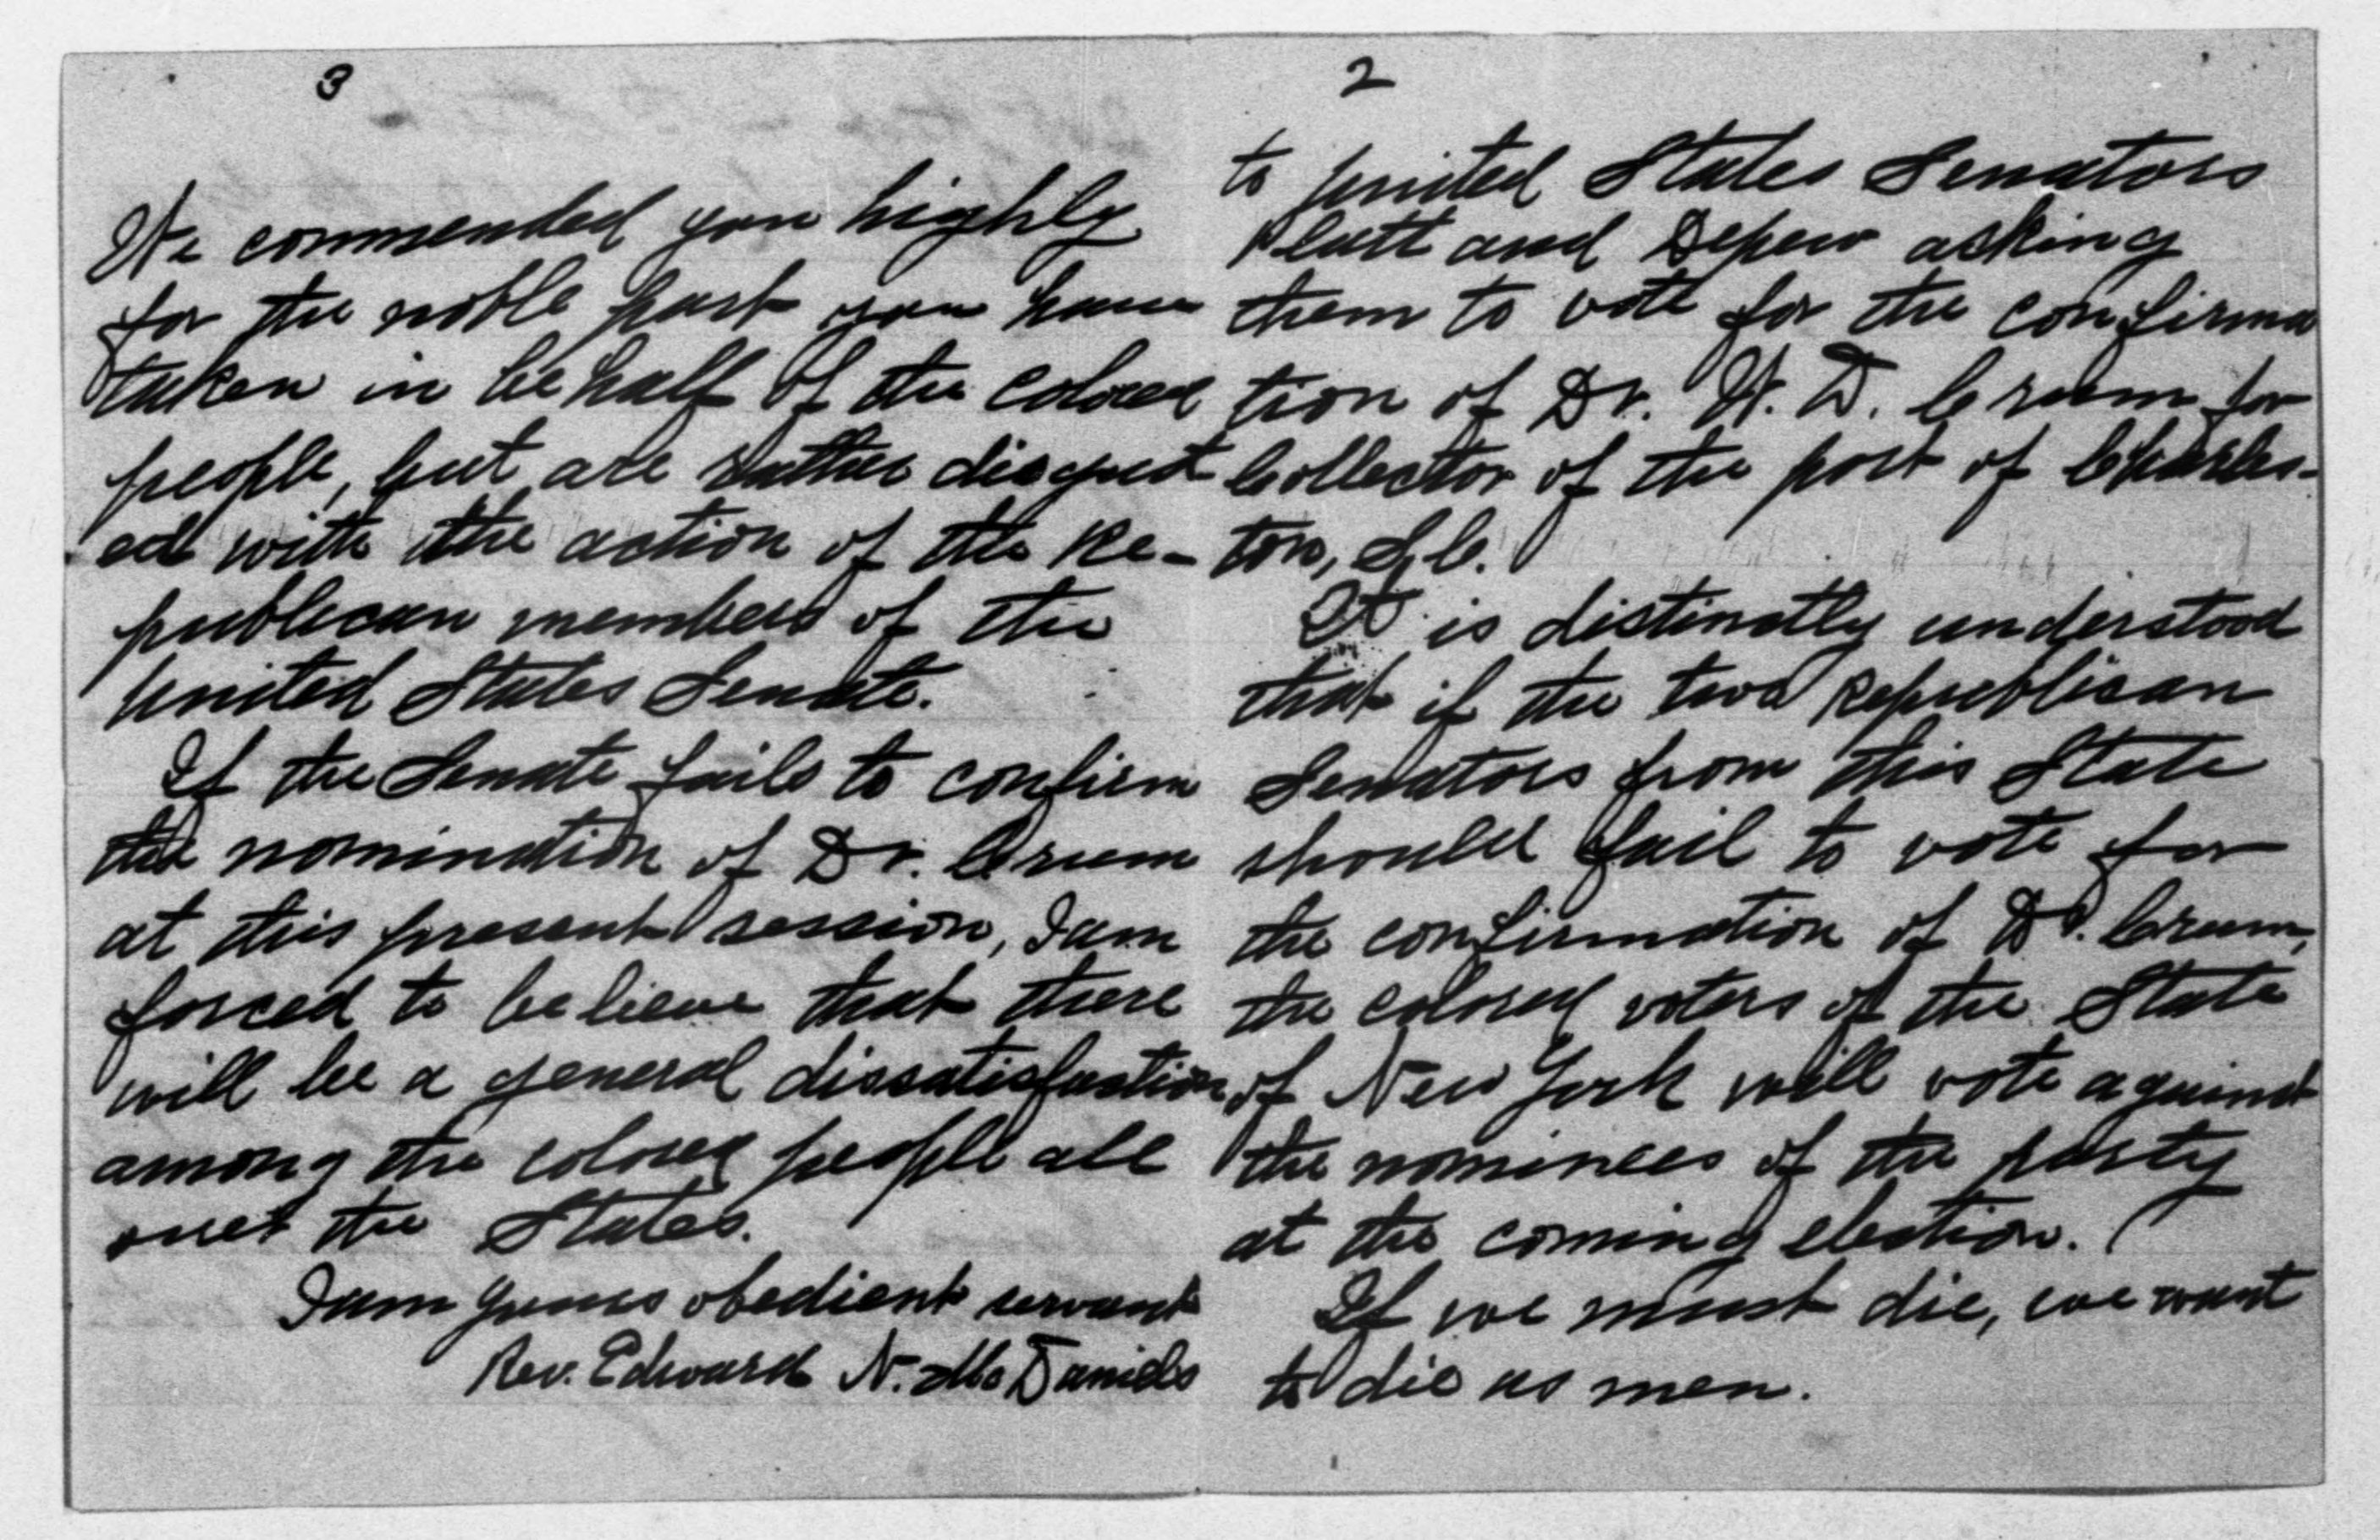 2
to United States Senators
Platt and Depew asking
them to vote for the confirma
tion of Dr. W. D. Crum for
Collector of the port of Charles-
ton, S.C.
It is distinctly understood
that if the two Republican
Senators from this State
should fail to vote for
the confirmation of Dr. Crum,
the colored voters of the State
of New York will vote against
the nominees of the party
at the coming election.
If we must die, we want
to die as men.
3
We commended you highly
for the noble part you have
taken in behalf of the colored
people, but are rather disgust
ed with the action of the Re-
publican members of the
United States Senate.
If the Senate fails to confirm
the nomination of Dr. Crum
at this present session, I am
forced to believe that there
will be a general dissatisfaction
among the colored people all
over the States.
I am yours obedient servant
Rev. Edward N. McDaniels